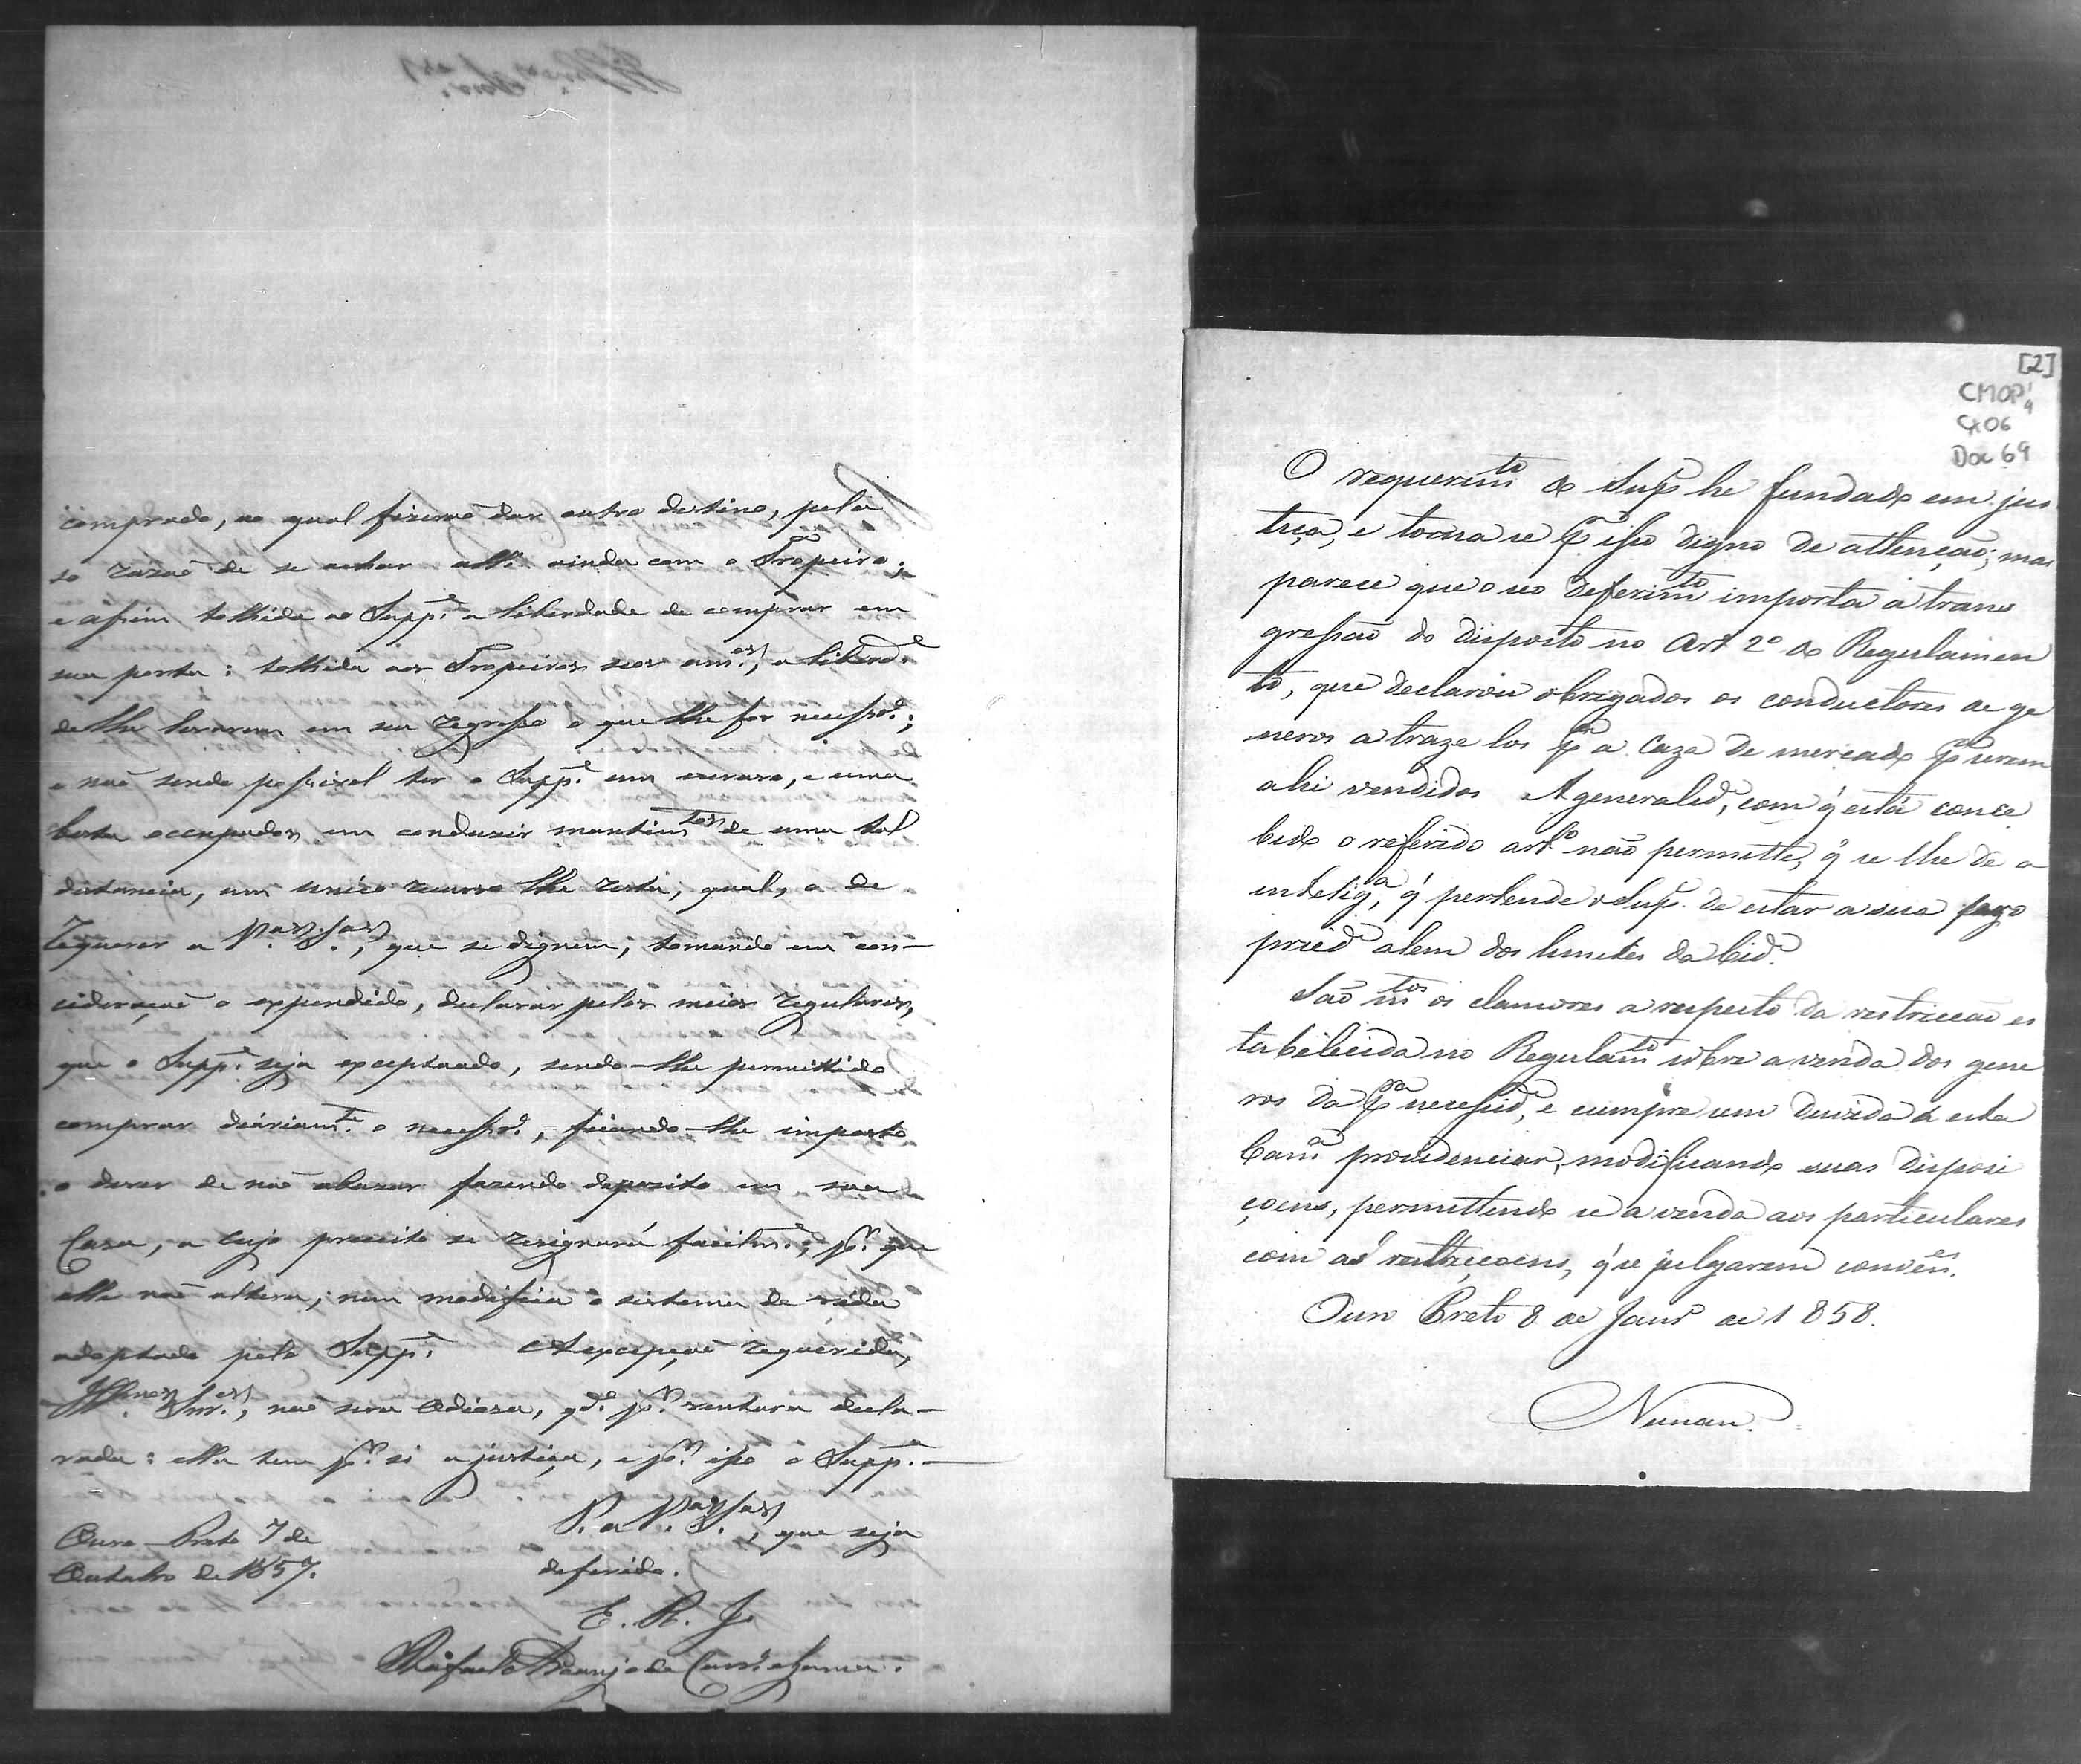 comprado, ao qual fizerão dar outro destino, pela
so razão de se achar alli ainda com o Tropeiro;
e assim tolhida ao Supp.e a liberdade de comprar em
sua porta: tolhida aos Tropeiros seos am.os, a liberd.e
de lhe levarem em seu regresso o que lhe for necess.o;
e não sendo possivel ter o Supp.e um escravo, e uma
besta occupados em conduzir mantim.tos de uma tal
distancia, um unico recurso lhe resta, qual, o de
requerer a V.as S.as, que se dignem, tomando em con-
cideração o expendido, declarar pelos meios regulares,
que o Supp.e seja exceptuado, sendo-lhe permittido
comprar diáriam.te o necess.o, ficando-lhe imposto
o dever de não abuzar fazendo deposito em sua
Casa, a cujo preceito se resignará facilm.e, p.r que
elle não altera, nem modifica o sistema de vida
adoptado pelo Supp.e A excepção requerida,
Ill.mos Snr.es, não sera Odioza, qd.o p.r ventura decla-
rada: ella tem p.r si a justiça, e p.r isso o Supp.e
P. a V.as S.as, que seja
deferido.
Ouro-Preto 7 de
Outubro de 1857.
E. R. J
Rafael Araujo de
[2]
CMOP
Cx 06
Doc 69
O requerim.to do Sup.e he fundado em jus
tiça, e torna se p.r isso digno de attenção; mas
parece que o seo deferim.to importa a trans
gressão do disposto no Art 2º do Regulamen
to, que declarou obrigados os conductores de ge
neros a traze los p.a a Caza de mercado p.a serem
ahi vendidos A generalid.e, com q' está conce
bido o referido art.o não permitte, q' se lhe dê a
intelig.a, q' pertende o Sup.e de estar a sua
pried.e alem dos limites da Cid.e
São m.tos os clamores a respeito da restricção es
tabelecida no Regulam.to sobre a venda dos gene
ros da p.ra necessid.e, e cumpre sem duvida a esta
Cam.a providenciar, modificando suas disposi
çoens, permittindo se a venda aos particulares
com as restricçoens, q' se julgarem conv.es.
Ouro Preto 8 de Janr.o de 1858.